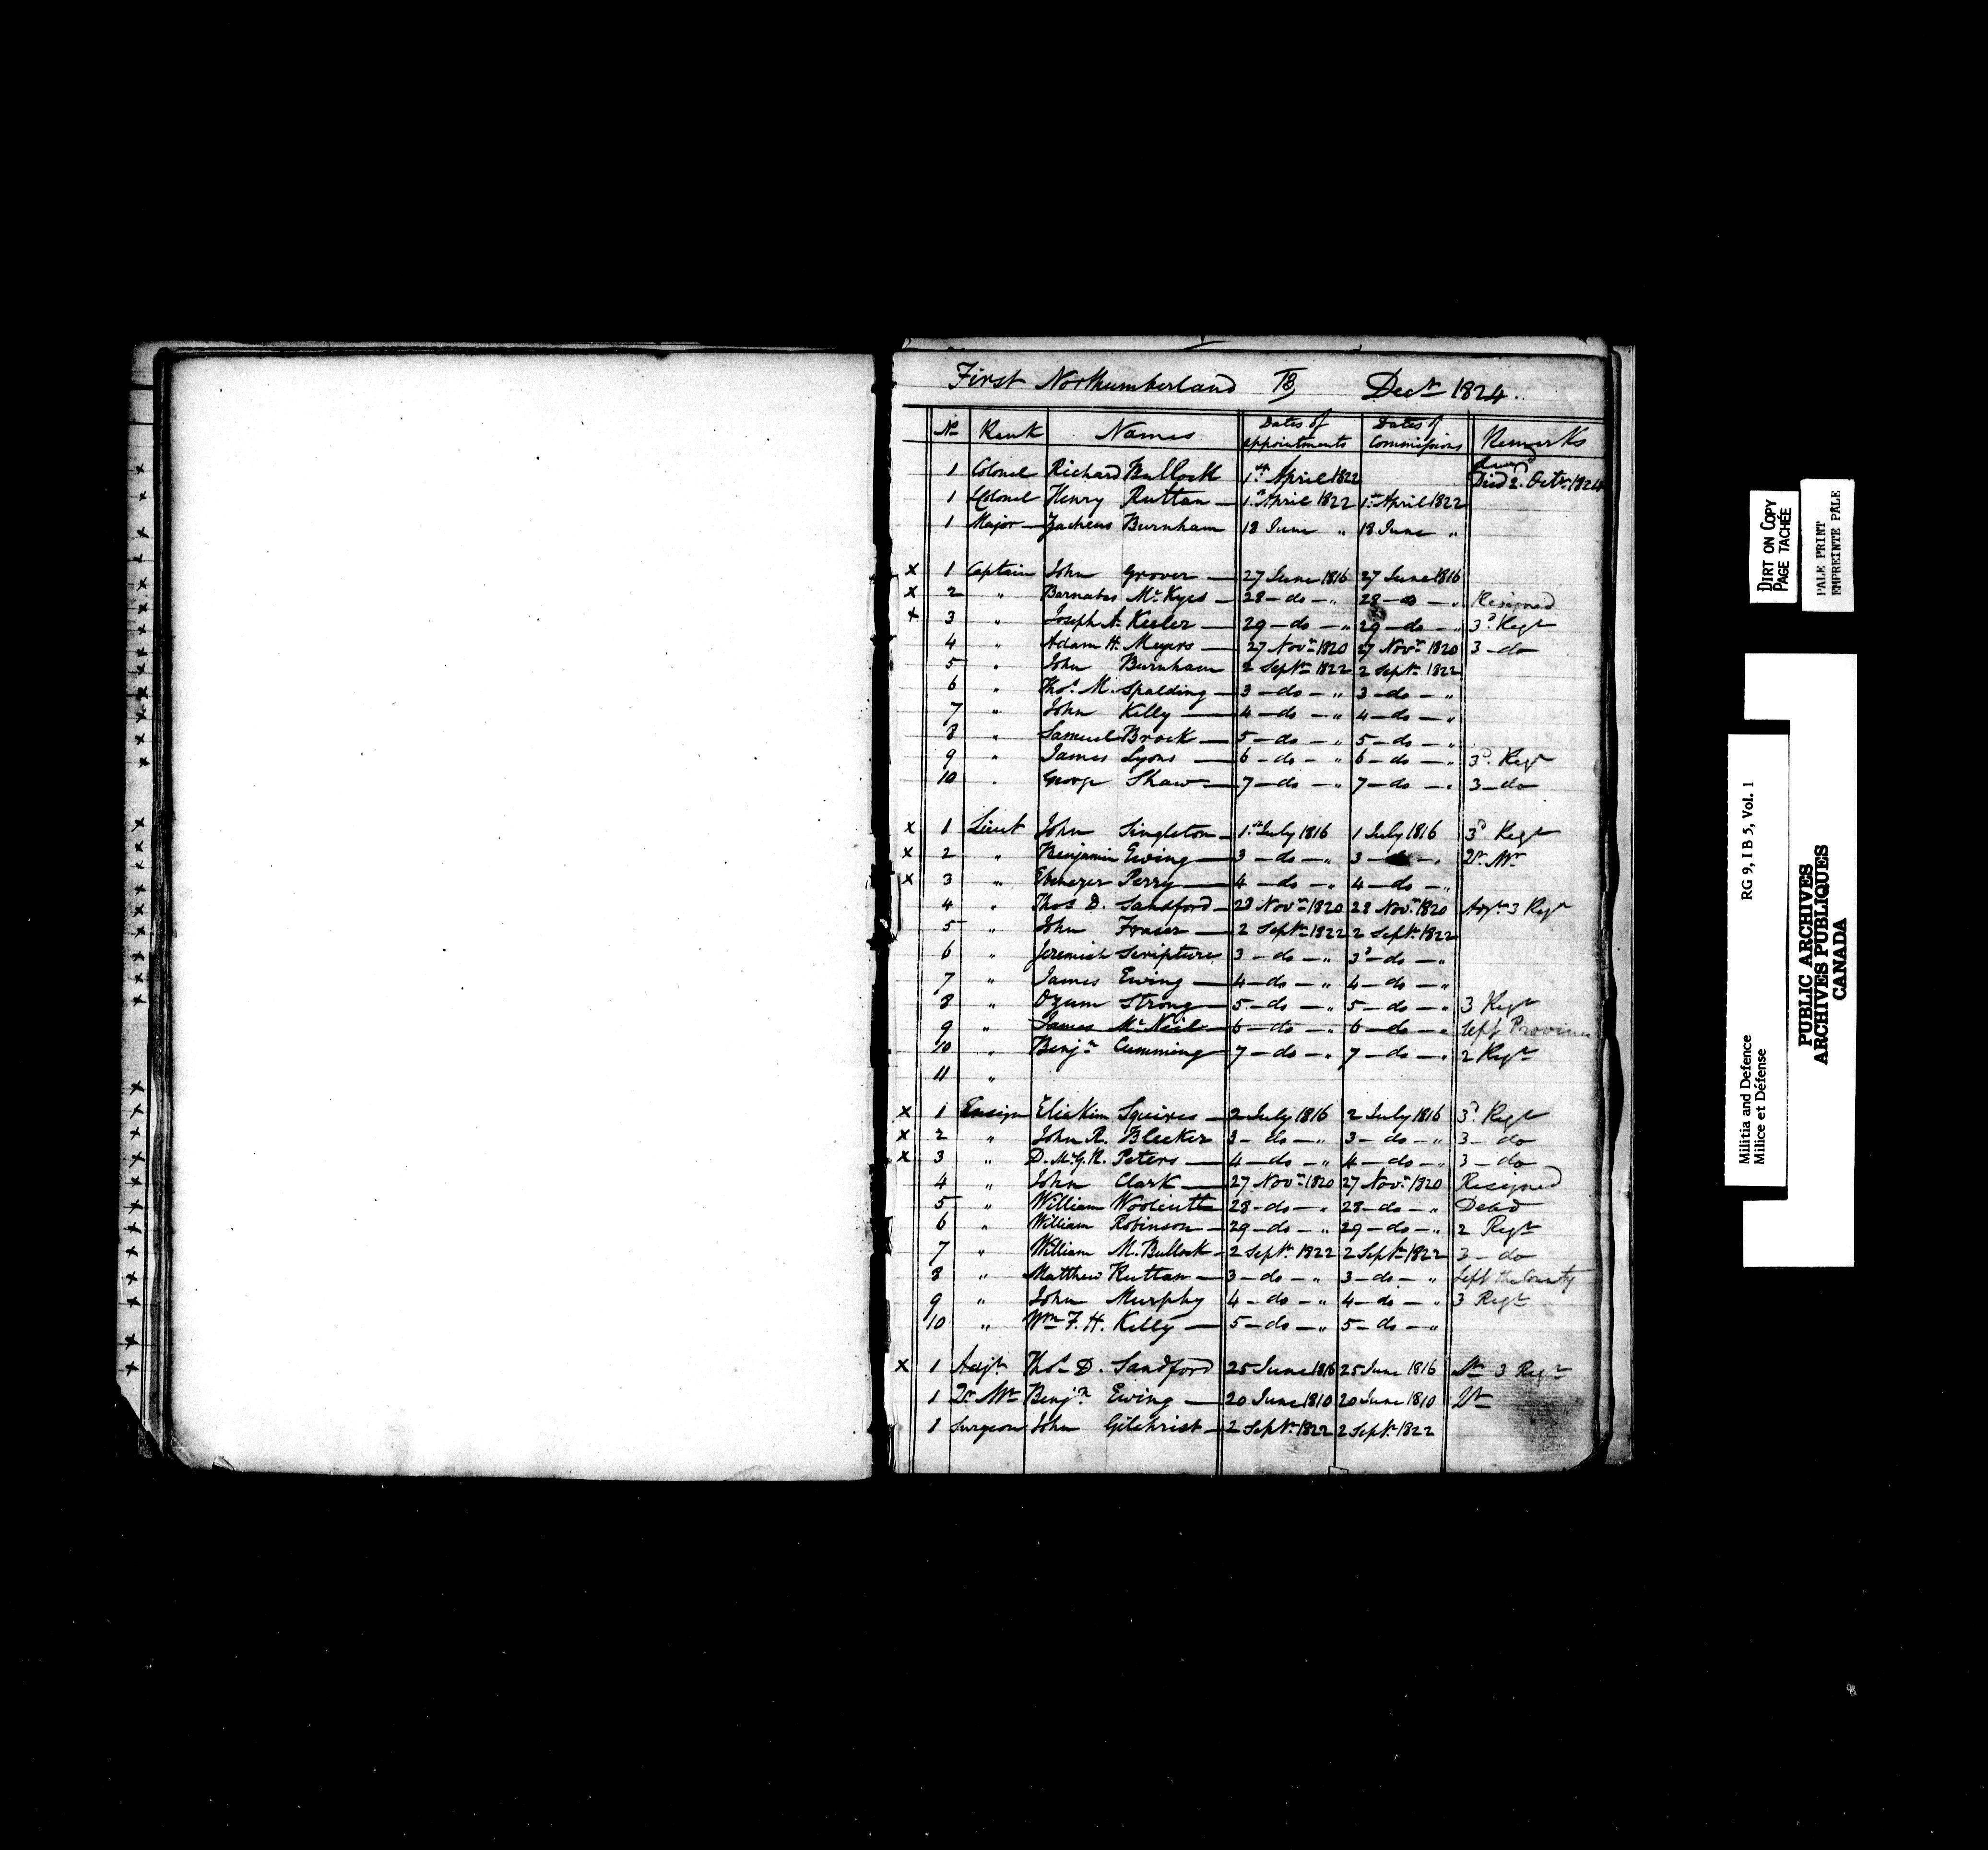 First Northumberland Decr 1824.
No Rank Names Dates of appointments Dates of Commissions Remarks
1 Colonel Richard Bullock 1st April 1822 Died 2. Octr 1824
1 Colonel Henry Ruttan — 1st April 1822 1st April 1822
1 Major — Zacheus Burnham 18 June " 18 June "
x 1 Captain John Grover — 27 June 1816 27 June 1816
x 2 " Barnabas McKyes — 28 — do — " 28 — do — " Resigned
x 3 " Joseph A. Keeler — 29 — do — " 29 — do — " 3d Regt
4 " Adam H. Meyers — 27 Novr 1820 27 Novr 1820 3 — do
5 " John Burnham 2 Septr 1822 2 Septr 1822
6 " Thos. M. Spalding — 3 — do — " 3 — do — "
7 " John Kelly — 4 — do — " 4 — do — "
8 " Samuel Brock — 5 — do — " 5 — do — "
9 " James Lyons — 6 — do — " 6 — do — " 3d. Regt
10 " George Shaw — 7 — do — " 7 — do — " 3 — do
x 1 Lieut John Singleton — 1st July 1816 1 July 1816 3d Regt
x 2 " Benjamin Ewing — 3 — do — " 3 — do — " Qr. Mr
x 3 " Ebenezer Perry — 4 — do — " 4 — do — "
4 " Thos D. Sandford — 28 Novr 1820 28 Novr 1820 Adjt 3 Regt
5 " John Fraser — 2 Septr 1822 2 Septr 1822
6 " Jeremiah Scripture 3 — do — " 3d — do — "
7 " James Ewing — 4 — do — " 4 — do — "
8 " Ozum Strong — 5 — do — " 5 — do — " 3 Regt
9 " James McNeil — 6 — do — " 6 — do — " left Province
10 " Benjn Cumming — 7 — do — " 7 — do — " 2 Regt
11 "
x 1 Ensign Eliakim Squires — 2 July 1816 2 July 1816 3d. Regt
x 2 " John R. Bleeker 3 — do — " 3 — do — " 3 — do
x 3 " D. McG. R. Peters — 4 — do — " 4 — do — " 3 — do
4 " John Clark — 27 Novr 1820 27 Novr 1820 Resigned
5 " William Woolcutt 28 — do — " 28 — do — "
6 " William Robinson — 29 — do — " 29 — do — " 2 Regt
7 " William M. Bullock — 2 Septr 1822 2 Septr 1822 3 — do
8 " Matthew Ruttan — 3 — do — " 3 — do — " left the County
9 " John Murphy 4 — do — " 4 — do — " 3 Regt
10 " Wm F. H. Kelly — 5 — do — " 5 — do — "
x 1 Adjt Thos D. Sandford 25 June 1816 25 June 1816 3 Regt
1 Qr Mr Benjn Ewing — 20 June 1810 20 June 1810
1 Surgeon John Gilchrist — 2 Septr 1822 2 Septr 1822
DIRT ON COPY
PAGE TACHÉE
PALE PRINT
EMPREINTE PALE
RG 9, I B 5, Vol. 1
Militia and Defence
Milice et Défense
PUBLIC ARCHIVES
ARCHIVES PUBLIQUES
CANADA